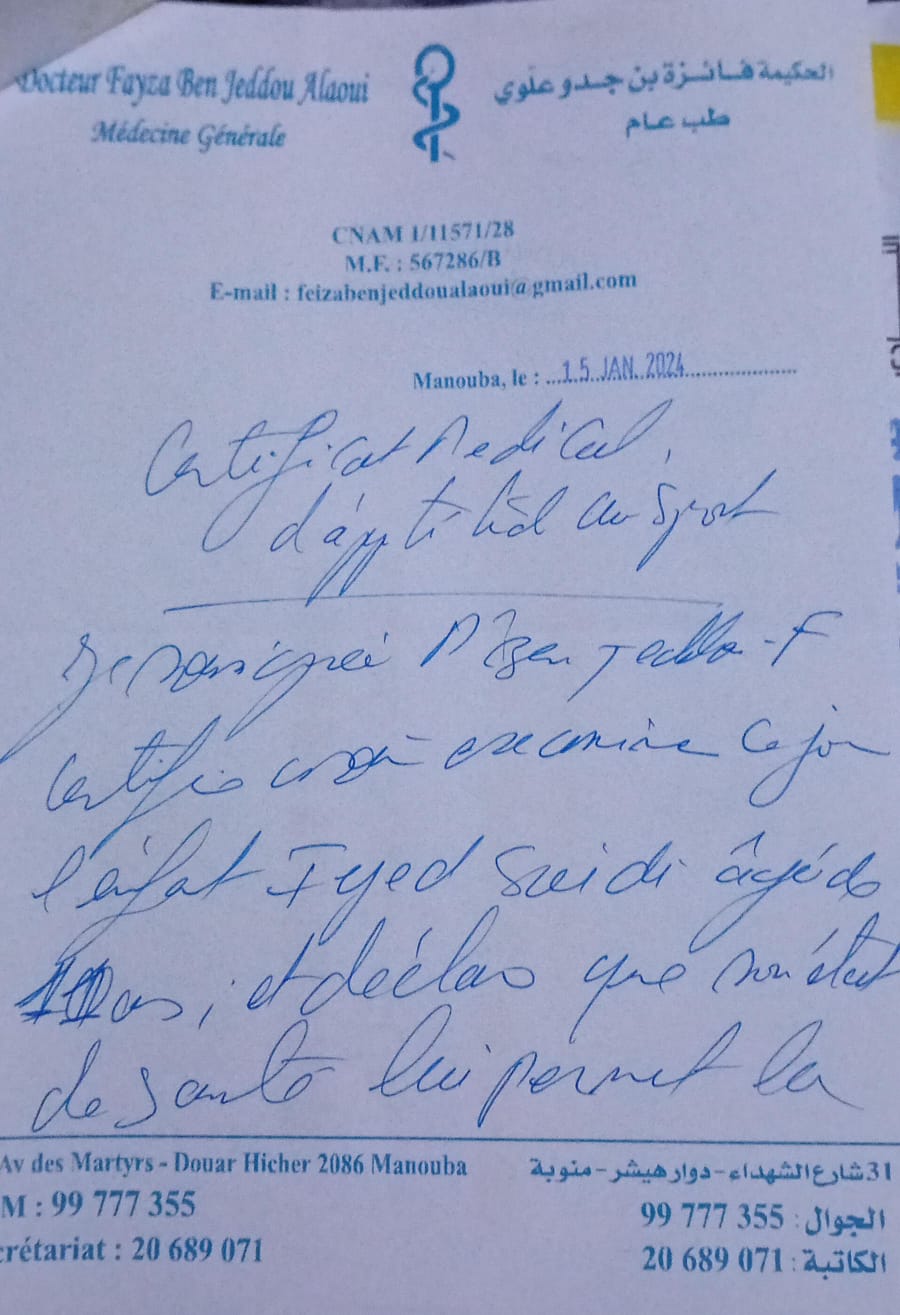 Docteur Fayza Ben Jeddou Alaoui
Médecine Générale
الحكيمة فائزة بن جدو علوي
طب عام
CNAM 1/11571/28
M.F. : 567286/B
E-mail : feizabenjeddoualaoui@gmail.com
Manouba, le : ...15 JAN. 2024...
Certificat Medical
d'apptitud au sport
Je soussignée Ben Jeddou-F
Certifie examiné ce jour
l'enfant Iyed Saidi âgé de
11 ans, et déclare que son état
de santé lui permet la
Av des Martyrs - Douar Hicher 2086 Manouba
M : 99 777 355
crétariat : 20 689 071
31 شارع الشهداء - دوار هيشر - منوبة
الجوال : 355 777 99
الكاتبة : 071 689 20